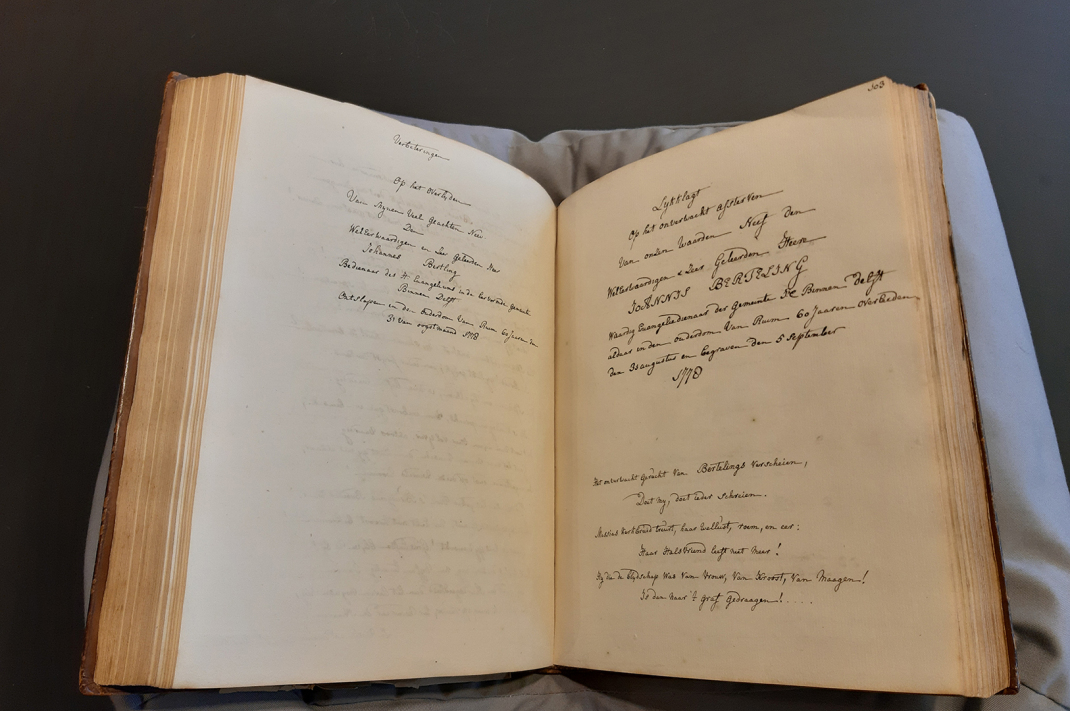 Verbeteringen
Op het overlyden
Van Mynen Veel Geachten Neev
Den
Weleerwaardigen en Zeer Geleerden Heer
Johannes Bertling
Bedienaar des H: Evangeliums in de Gemeente
Binnen Delft
Ontslapen in de ouderdom Van Ruim 60 Jaaren den
31 Van oogstmaand 1778
303
Lykklagt
Op het onverwacht afsterven
Van onzen Waarden Neef den
Weleerwaardigen & Zeer Geleerden Heere
JOANNIS BERTELING
Waardig Euangeliedienaar der Gemeente JC Binnen Delft
aldaar in den ouderdom Van Ruim 60 Jaaren overleeden
den 31 augustus en begraven den 5 September
1778
Het onverwacht gerucht Van Bertelings Verscheien,
Doet my, doet ieder schreien.
Messias Kerkbruid treurt, haar Wellust, roem, en eer:
Haar Halsvriend leeft niet meer!
Hy die de Blydschap Was Van Vrouw, Van Kroost, Van Maagen!
Is dan naar 't graf gedraagen! . . . .